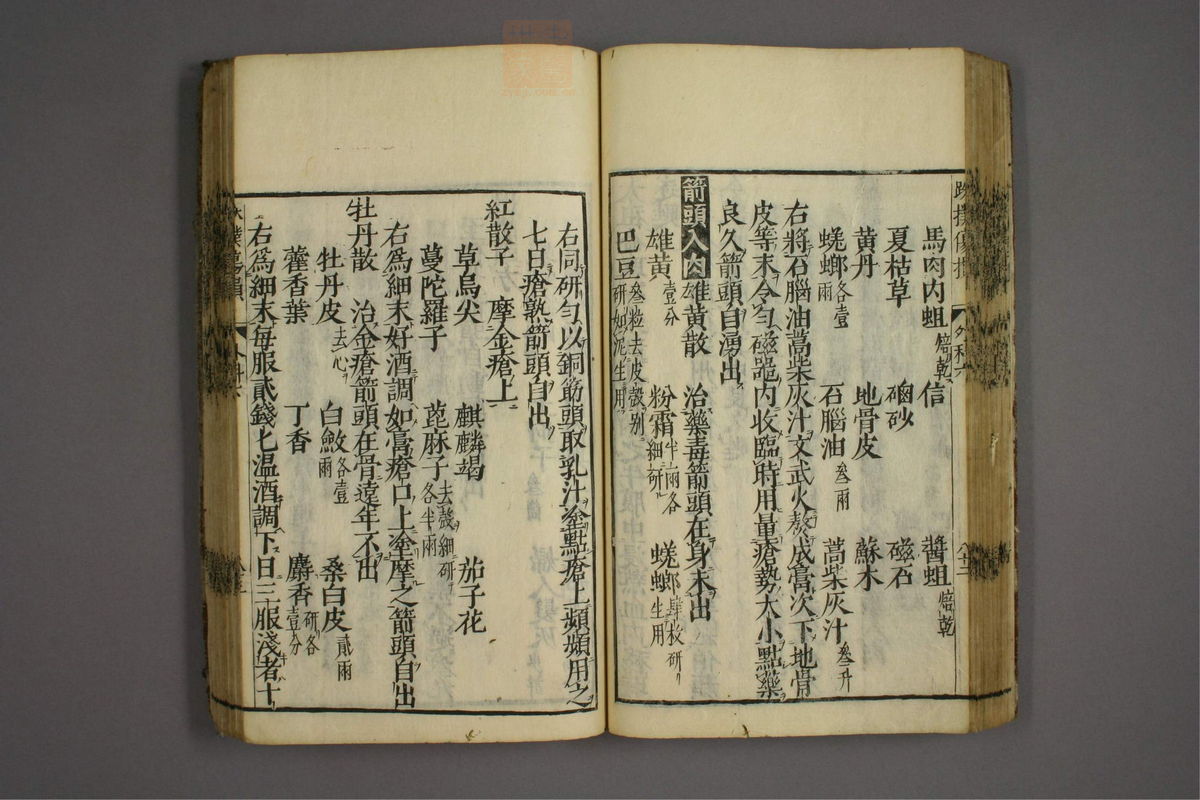 馬肉内蛆焙乾　信　醬蛆焙乾
夏枯草　硇砂　磁石
黄丹　地骨皮　蘇木
蜣螂各壹兩　石腦油叁兩　蒿柴灰汁叁升
右將石腦油蒿柴灰汁文武火熬成膏次下地骨
皮等末令匀磁器内收臨時用量瘡勢大小點藥
良久箭頭自湧出
箭頭入肉雄黄散　治藥毒箭頭在身未出
雄黄壹分　粉霜半兩各細研　蜣螂肆枚研生用
巴豆叁粒去皮殼別研如泥生用
右同研匀以銅筋頭取乳汁塗點瘡上頻頻用之
七日瘡熟箭頭自出
紅散子　摩金瘡上
草烏尖　麒麟竭　茄子花
蔓陀羅子　蓖麻子去殼細研各半兩
右爲細末好酒調如膏瘡口上塗摩之箭頭自出
牡丹散　治金瘡箭頭在骨遠年不出
牡丹皮去心　白斂各壹兩　桑白皮貳兩
藿香葉　丁香　麝香研各壹分
右爲細末每服貳錢匕温酒調下日三服淺者十